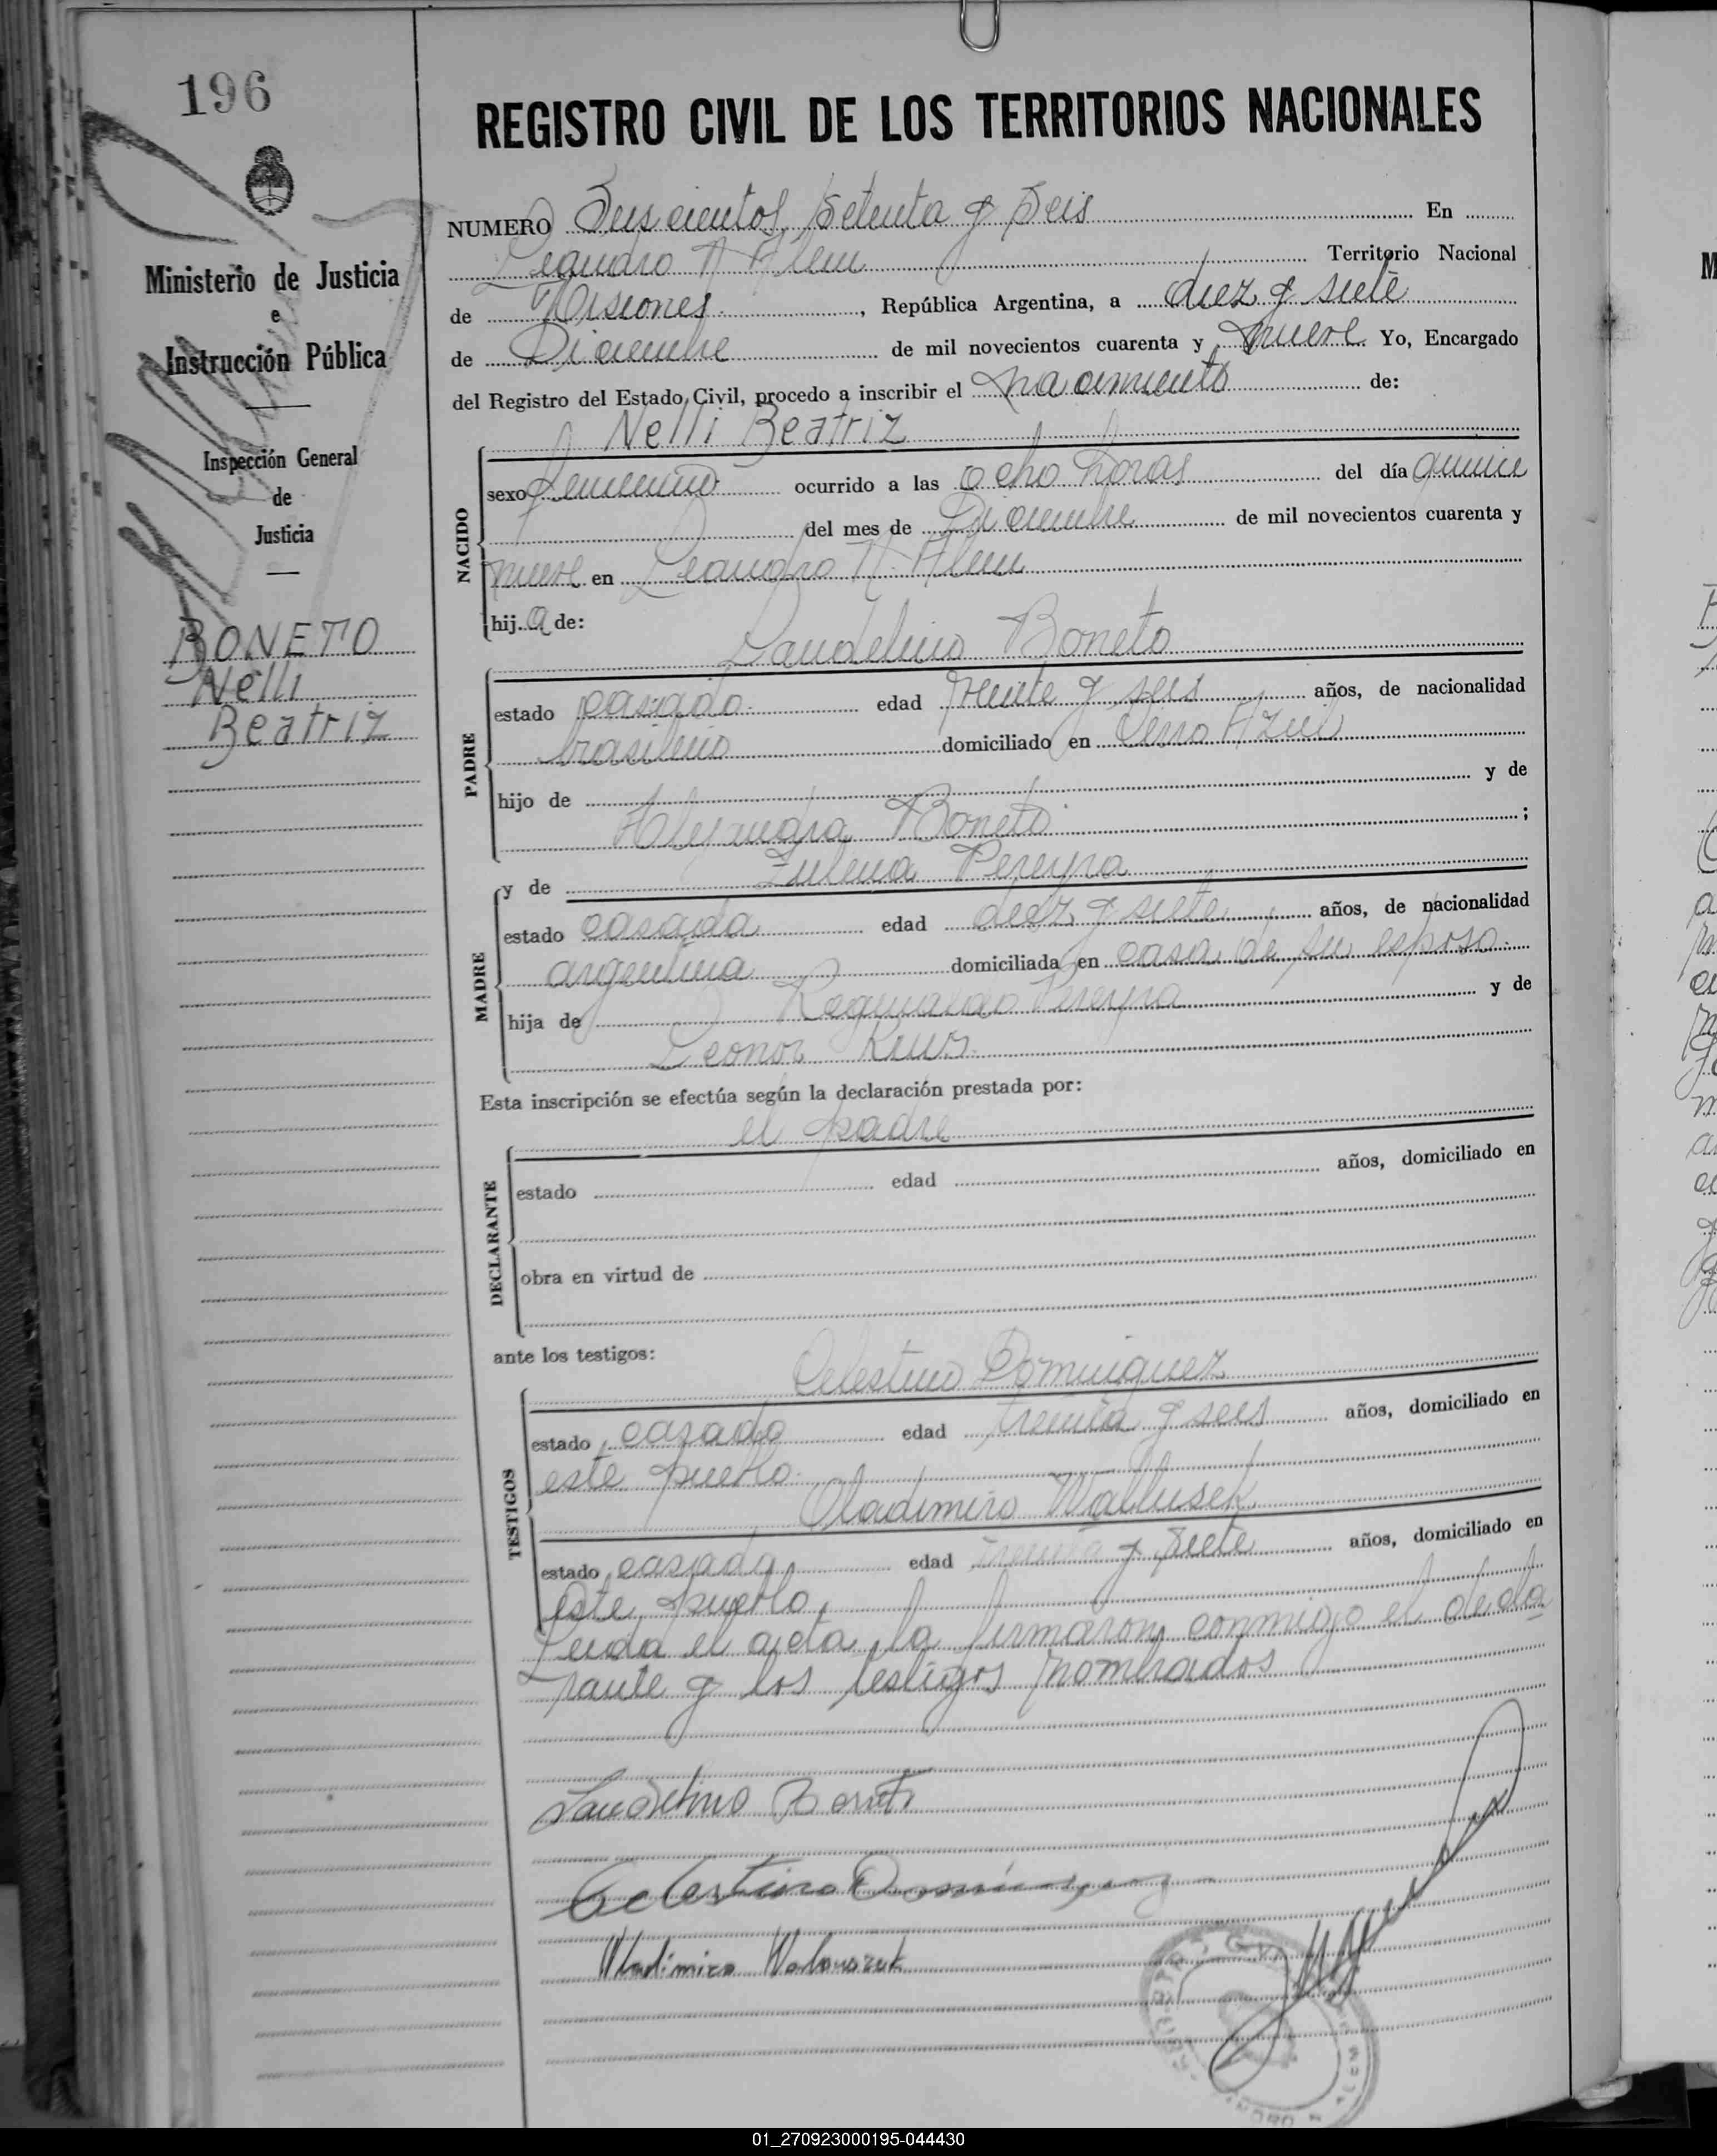 196
REGISTRO CIVIL DE LOS TERRITORIOS NACIONALES
Ministerio de Justicia
e
Instrucción Pública
Inspección General
de
Justicia
BONETO
Nelli
Beatriz
NUMERO Seiscientos Setenta y Seis En
Leandro N Alem Territorio Nacional
de Misiones, República Argentina, a diez y siete
de Diciembre de mil novecientos cuarenta y nueve Yo, Encargado
del Registro del Estado Civil, procedo a inscribir el nacimiento de:
Nelli Beatriz
NACIDO
sexo femenino ocurrido a las ocho horas del día quince
del mes de Diciembre de mil novecientos cuarenta y
nueve en Leandro N. Alem
hija de:
Laudelino Boneto
PADRE
estado casado edad treinta y seis años, de nacionalidad
brasileño domiciliado en Cerro Azul
hijo de y de
Alejandra Boneto ;
y de Zulema Pereyra
MADRE
estado casada edad diez y siete años, de nacionalidad
argentina domiciliada en casa de su esposo
hija de Reginaldo Pereyra y de
Leonor
Esta inscripción se efectúa según la declaración prestada por:
el padre
DECLARANTE
estado edad años, domiciliado en
obra en virtud de
ante los testigos:
Celestino Dominguez
TESTIGOS
estado casado edad treinta y seis años, domiciliado en
este pueblo.
Vladimiro Wallusek
estado casado edad treinta y siete años, domiciliado en
este pueblo.
Leida el acta, la firmaron conmigo el decla
rante y los testigos nombrados
Laudelino Boneto
Celestino Domínguez
Wladimiro Walouszek
01_270923000195-044430